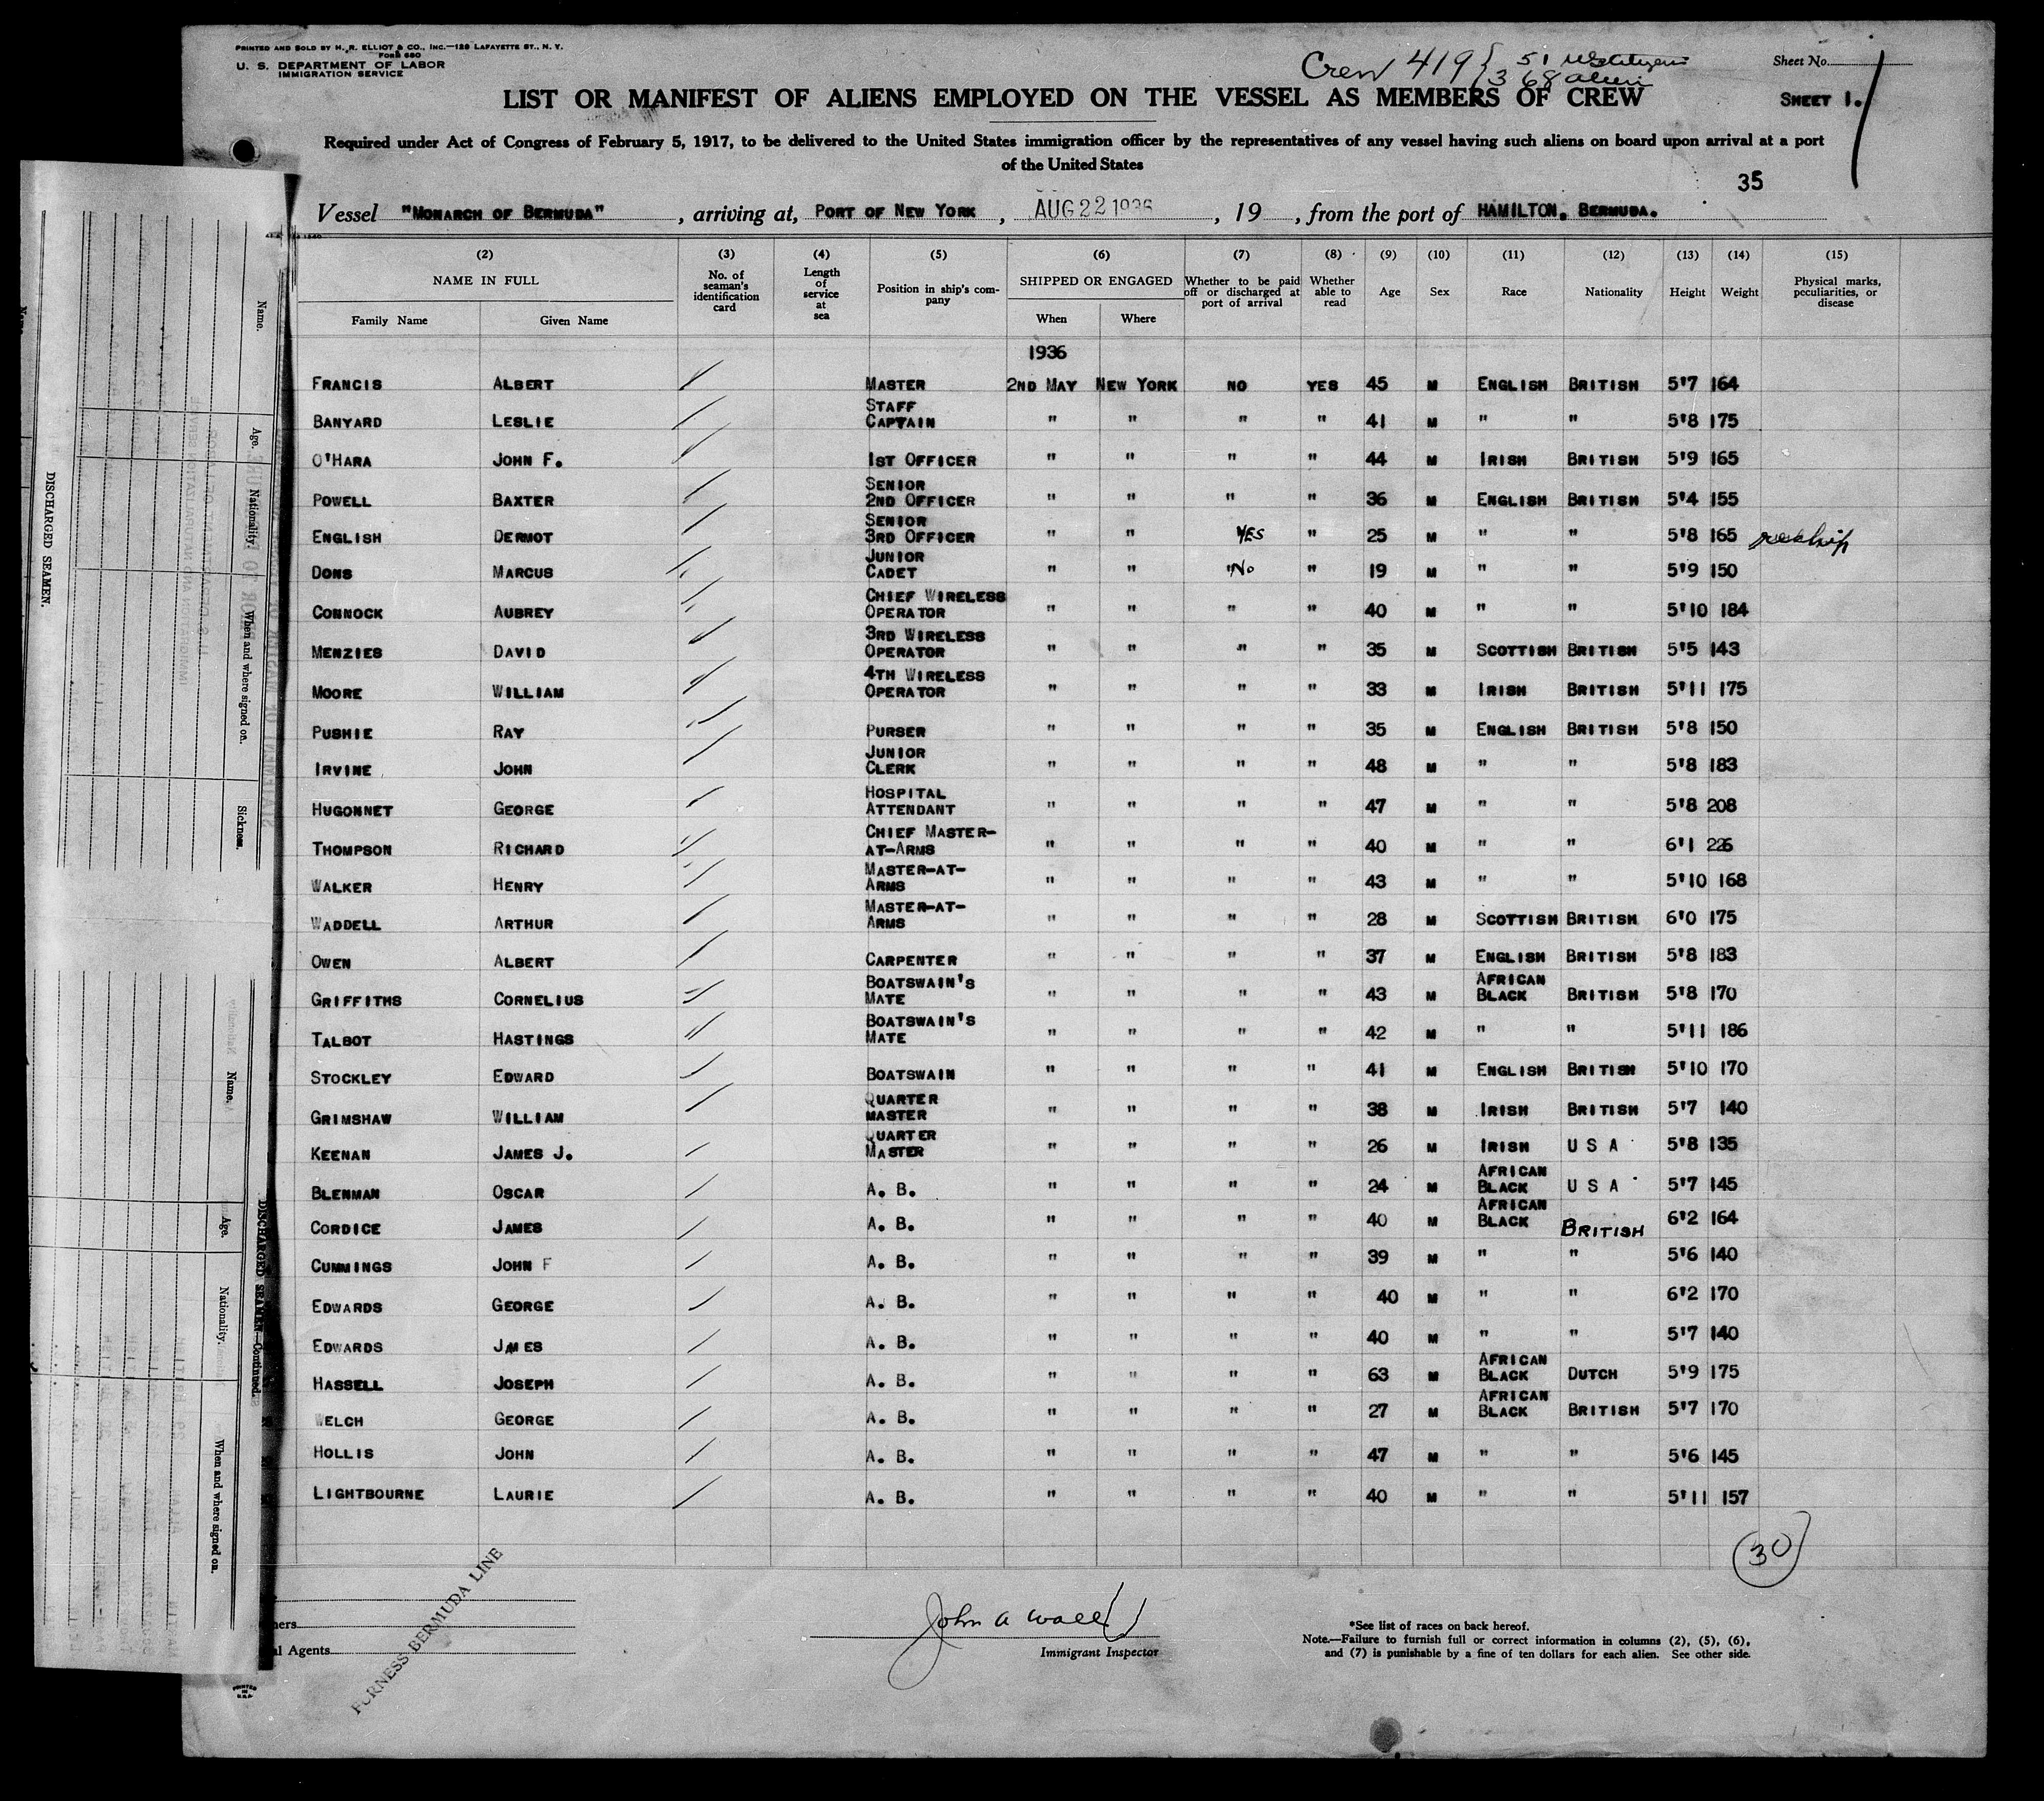 PRINTED AND SOLD BY H. R. ELLIOT & CO., INC.—129 LAFAYETTE ST., N. Y.
FORM 680
U. S. DEPARTMENT OF LABOR
IMMIGRATION SERVICE
Crew 419 { 51
368 aliens
Sheet No.
SHEET 1.
LIST OR MANIFEST OF ALIENS EMPLOYED ON THE VESSEL AS MEMBERS OF CREW
Required under Act of Congress of February 5, 1917, to be delivered to the United States immigration officer by the representatives of any vessel having such aliens on board upon arrival at a port
of the United States
35
Vessel "MONARCH OF BERMUDA", arriving at, PORT OF NEW YORK, AUG 22 1936, 19 , from the port of HAMILTON, BERMUDA.
(2) (3) (4) (5) (6) (7) (8) (9) (10) (11) (12) (13) (14) (15)
NAME IN FULL No. of seaman's identification card Length of service at sea Position in ship's company SHIPPED OR ENGAGED Whether to be paid off or discharged at port of arrival Whether able to read Age Sex Race Nationality Height Weight Physical marks, peculiarities, or disease
Family Name Given Name When Where
1936
FRANCIS ALBERT MASTER 2ND MAY NEW YORK NO YES 45 M ENGLISH BRITISH 5'7 164
BANYARD LESLIE STAFF CAPTAIN " " " " 41 M " " 5'8 175
O'HARA JOHN F. 1ST OFFICER " " " " 44 M IRISH BRITISH 5'9 165
POWELL BAXTER SENIOR 2ND OFFICER " " " " 36 M ENGLISH BRITISH 5'4 155
ENGLISH DERMOT SENIOR 3RD OFFICER " " YES " 25 M " " 5'8 165
DONS MARCUS JUNIOR CADET " " "No " 19 M " " 5'9 150
CONNOCK AUBREY CHIEF WIRELESS OPERATOR " " " " 40 M " " 5'10 184
MENZIES DAVID 3RD WIRELESS OPERATOR " " " " 35 M SCOTTISH BRITISH 5'5 143
MOORE WILLIAM 4TH WIRELESS OPERATOR " " " " 33 M IRISH BRITISH 5'11 175
PUSHIE RAY PURSER " " " " 35 M ENGLISH BRITISH 5'8 150
IRVINE JOHN JUNIOR CLERK " " " " 48 M " " 5'8 183
HUGONNET GEORGE HOSPITAL ATTENDANT " " " " 47 M " " 5'8 208
THOMPSON RICHARD CHIEF MASTER-AT-ARMS " " " " 40 M " " 6'1 226
WALKER HENRY MASTER-AT-ARMS " " " " 43 M " " 5'10 168
WADDELL ARTHUR MASTER-AT-ARMS " " " " 28 M SCOTTISH BRITISH 6'0 175
OWEN ALBERT CARPENTER " " " " 37 M ENGLISH BRITISH 5'8 183
GRIFFITHS CORNELIUS BOATSWAIN'S MATE " " " " 43 M AFRICAN BLACK BRITISH 5'8 170
TALBOT HASTINGS BOATSWAIN'S MATE " " " " 42 M " " 5'11 186
STOCKLEY EDWARD BOATSWAIN " " " " 41 M ENGLISH BRITISH 5'10 170
GRIMSHAW WILLIAM QUARTER MASTER " " " " 38 M IRISH BRITISH 5'7 140
KEENAN JAMES J. QUARTER MASTER " " " " 26 M IRISH U S A 5'8 135
BLENMAN OSCAR A. B. " " " " 24 M AFRICAN BLACK U S A 5'7 145
CORDICE JAMES A. B. " " " " 40 M AFRICAN BLACK BRITISH 6'2 164
CUMMINGS JOHN F A. B. " " " " 39 M " " 5'6 140
EDWARDS GEORGE A. B. " " " " 40 M " " 6'2 170
EDWARDS JAMES A. B. " " " " 40 M " " 5'7 140
HASSELL JOSEPH A. B. " " " " 63 M AFRICAN BLACK DUTCH 5'9 175
WELCH GEORGE A. B. " " " " 27 M AFRICAN BLACK BRITISH 5'7 170
HOLLIS JOHN A. B. " " " " 47 M " " 5'6 145
LIGHTBOURNE LAURIE A. B. " " " " 40 M " " 5'11 157
30
FURNESS BERMUDA LINE
Agents
John A Wall
Immigrant Inspector
*See list of races on back hereof.
Note.—Failure to furnish full or correct information in columns (2), (5), (6),
and (7) is punishable by a fine of ten dollars for each alien. See other side.
PRINTED IN U.S.A.
DISCHARGED SEAMEN.
Name. Age. Nationality. When and where signed on. Sickness.
DISCHARGED SEAMEN—Continued.
Name. Age. Nationality. When and where signed on.